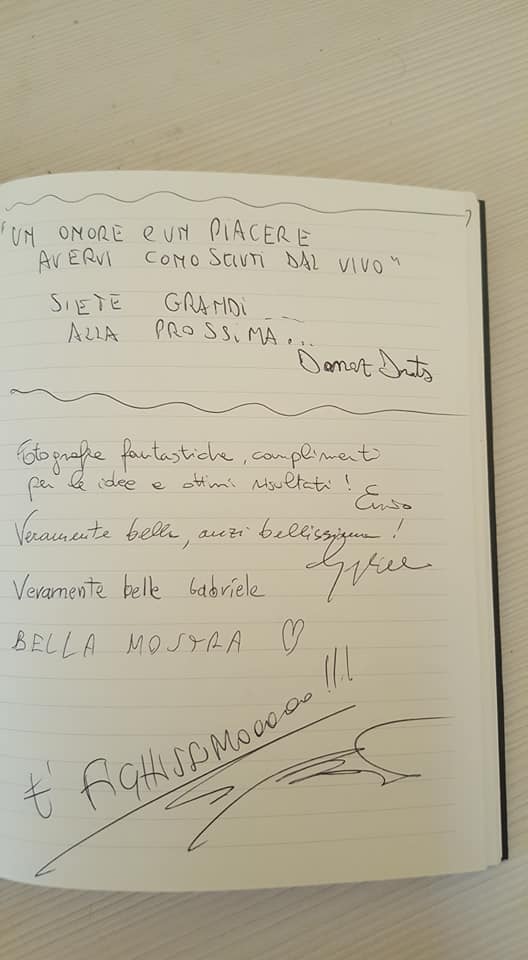 "UN ONORE e UN PIACERE
AVERVI CONOSCIUTI DAL VIVO"
SIETE GRANDI ...
ALLA PROSSIMA...
Fotografie fantastiche, complimenti
per le idee e ottimi risultati!
Enso
Veramente belle, anzi bellissime!
Veramente belle Gabriele
BELLA MOSTRA ♡
E' FIGHISSIMOooooo !!!!